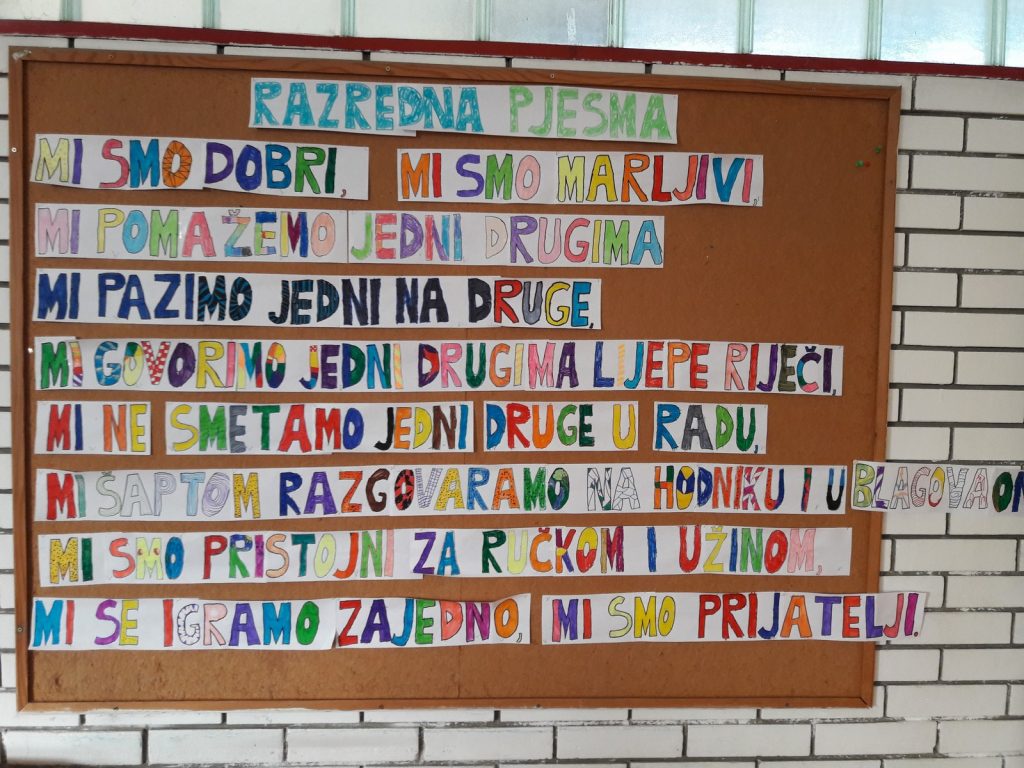 RAZREDNA PJESMA
MI SMO DOBRI, MI SMO MARLJIVI,
MI POMAŽEMO JEDNI DRUGIMA
MI PAZIMO JEDNI NA DRUGE,
MI GOVORIMO JEDNI DRUGIMA LIJEPE RIJEČI,
MI NE SMETAMO JEDNI DRUGE U RADU,
MI ŠAPTOM RAZGOVARAMO NA HODNIKU I U
MI SMO PRISTOJNI ZA RUČKOM I UŽINOM,
MI SE IGRAMO ZAJEDNO, MI SMO PRIJATELJI.